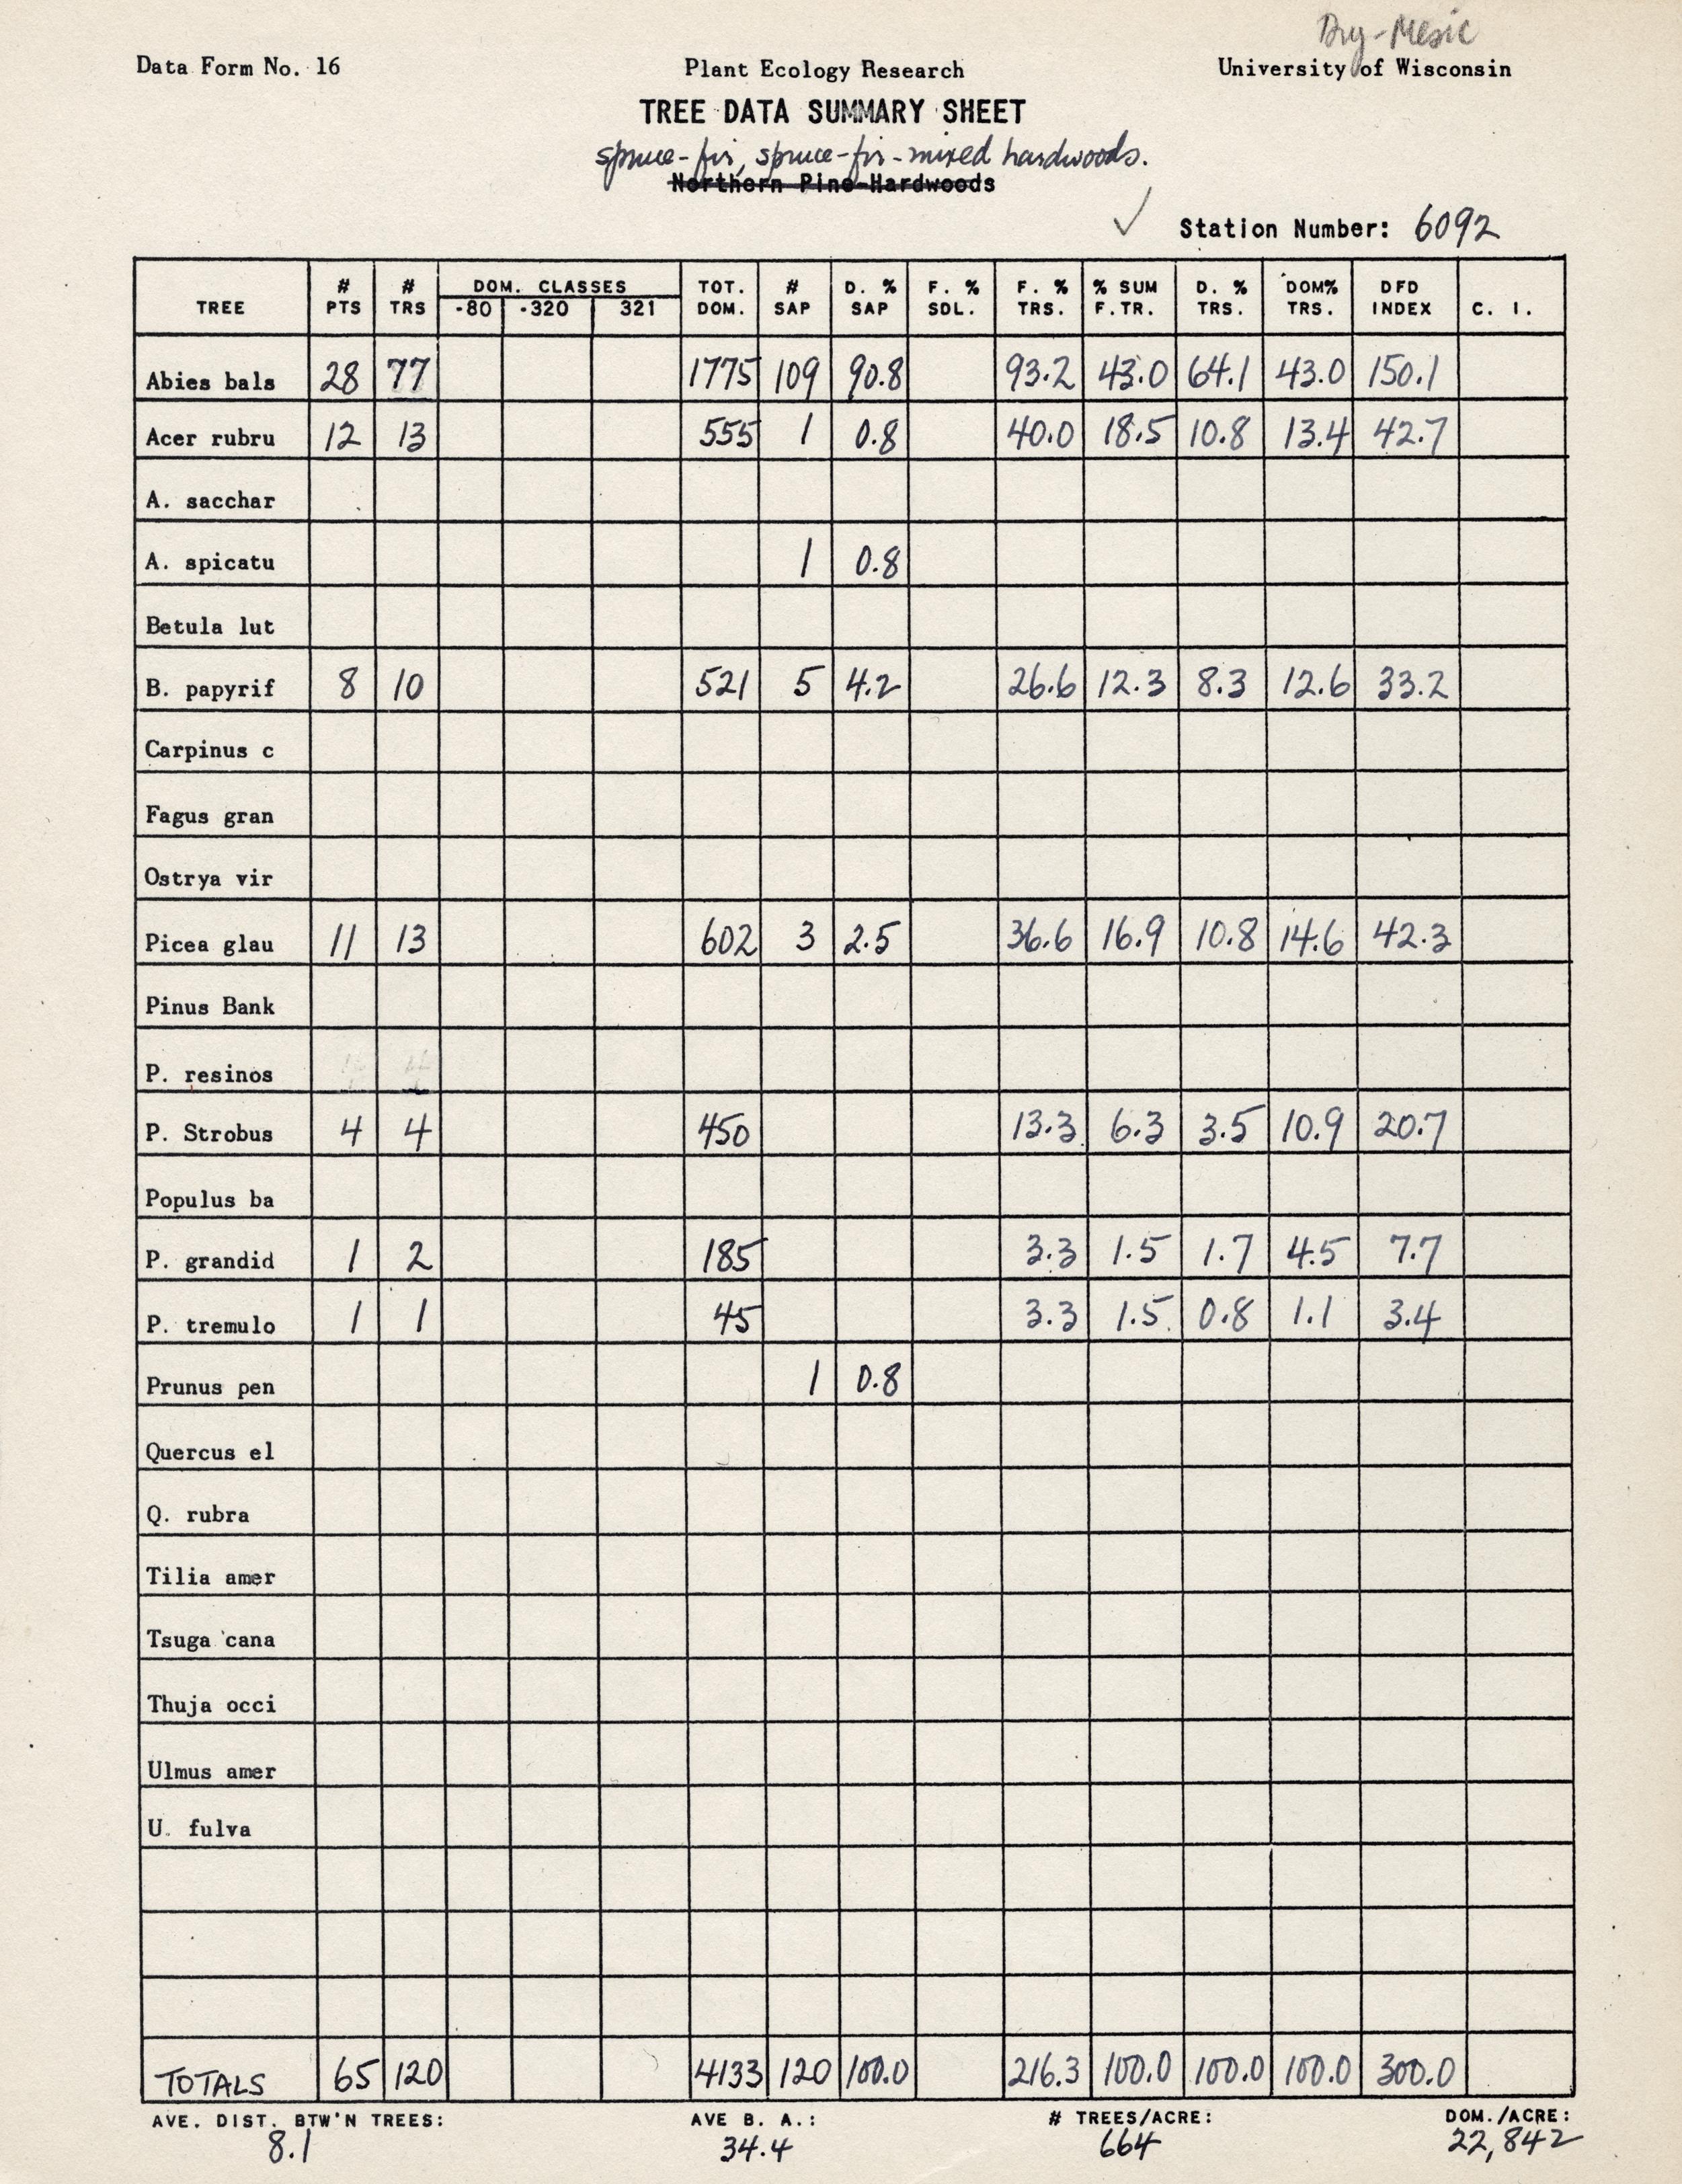 Dry-Mesic
Data Form No. 16 Plant Ecology Research University of Wisconsin
TREE DATA SUMMARY SHEET
spruce-fir, spruce-fir-mixed hardwoods.
Northern Pine-Hardwoods
✓ Station Number: 6092
TREE # PTS # TRS DOM. CLASSES -80 -320 321 TOT. DOM. # SAP D. % SAP F. % SDL. F. % TRS. % SUM F.TR. D. % TRS. DOM% TRS. DFD INDEX C. I.
Abies bals 28 77 1775 109 90.8 93.2 43.0 64.1 43.0 150.1
Acer rubru 12 13 555 1 0.8 40.0 18.5 10.8 13.4 42.7
A. sacchar
A. spicatu 1 0.8
Betula lut
B. papyrif 8 10 521 5 4.2 26.6 12.3 8.3 12.6 33.2
Carpinus c
Fagus gran
Ostrya vir
Picea glau 11 13 602 3 2.5 36.6 16.9 10.8 14.6 42.3
Pinus Bank
P. resinos
P. Strobus 4 4 450 13.3 6.3 3.5 10.9 20.7
Populus ba
P. grandid 1 2 185 3.3 1.5 1.7 4.5 7.7
P. tremulo 1 1 45 3.3 1.5 0.8 1.1 3.4
Prunus pen 1 0.8
Quercus el
Q. rubra
Tilia amer
Tsuga cana
Thuja occi
Ulmus amer
U. fulva
TOTALS 65 120 4133 120 100.0 216.3 100.0 100.0 100.0 300.0
AVE. DIST. BTW'N TREES: AVE B. A.: # TREES/ACRE: DOM./ACRE:
8.1 34.4 664 22,842